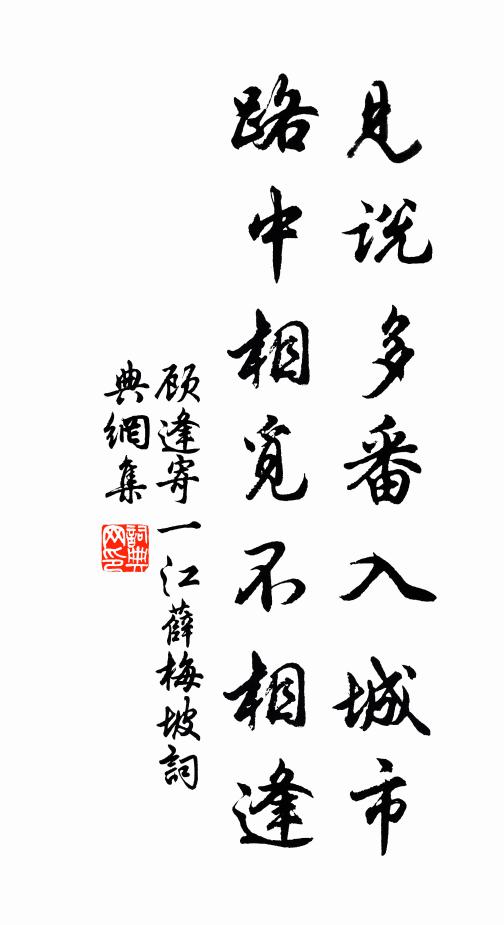 見説多番入城市
路中相覓不相逢
顧逢寄一江薛梅坡詞
典網集
詞典網印